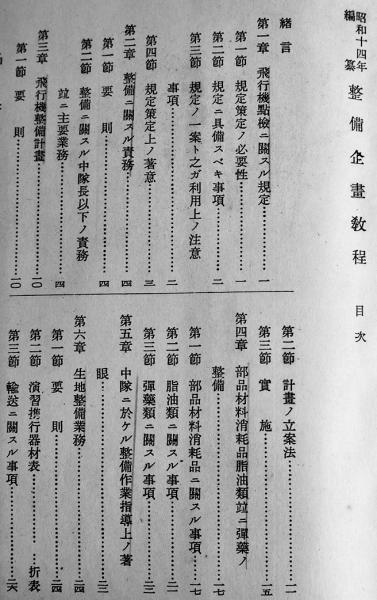 昭和十四年
編纂 整備企畫敎程 目次
緒言
第一章 飛行機點檢ニ關スル規定……一
第一節 規定策定ノ必要性……一
第二節 規定ニ具備スベキ事項……二
第三節 規定ノ一案ト之ガ利用上ノ注意
事項……二
第四節 規定策定上ノ著意……三
第二章 整備ニ關スル責務……四
第一節 要則……四
第二節 整備ニ關スル中隊長以下ノ責務
竝ニ主要業務……四
第三章 飛行機整備計畫……一〇
第一節 要則……一〇
第二節 計畫ノ立案法……一一
第三節 實施……一五
第四章 部品材料消耗品脂油類竝ニ彈藥ノ
整備……一七
第一節 部品材料消耗品ニ關スル事項……一七
第二節 脂油類ニ關スル事項……二一
第三節 彈藥類ニ關スル事項……二二
第五章 中隊ニ於ケル整備作業指導上ノ著
眼……二三
第六章 生地整備業務……二四
第一節 要則……二四
第二節 演習携行器材表……折表
第三節 輸送ニ關スル事項……二六